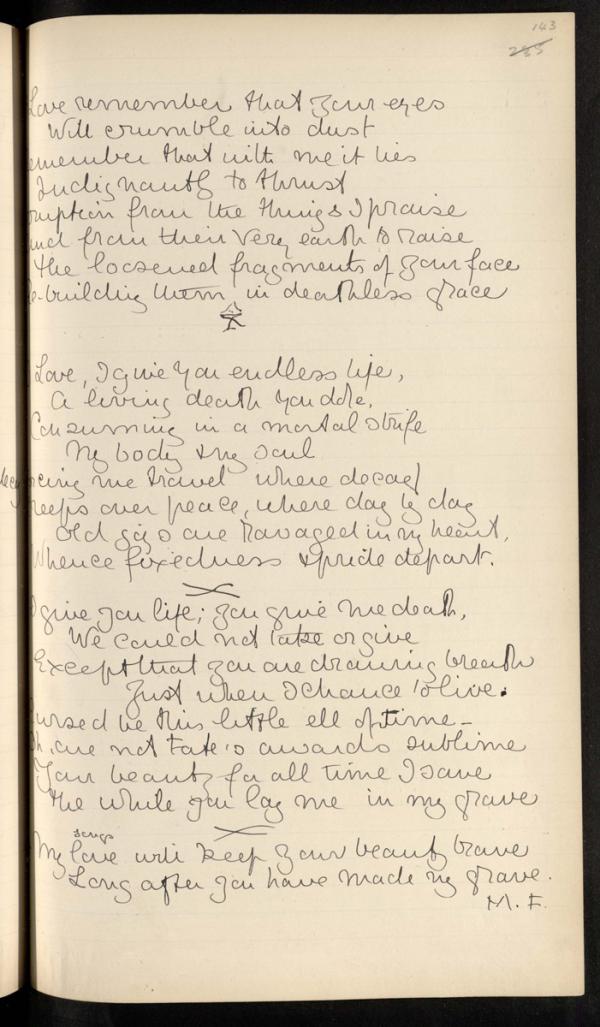 143
255
Love remember that your eyes
Will crumble into dust
emember that with me it lies
Indignantly to thrust
ruption from the things I praise
and from their very earth to raise
the loosened fragments of your face
e-building them, in deathless grace
Love, I give you endless life,
A living death you dole,
Consuming in a mortal strife
My body & my soul
cing me travel where decay
reeps over peace, where day by day
old joys are ravaged in my heart,
Whence fixedness & pride depart.
I give you life; you give me death,
We could not take or give
Except that you are drawing breath
Just when I chance to live.
ursed be this little ell of time -
Oh, are not Fate's awards sublime
Your beauty for all time I save
the while you lay me in my grave
songs
My love will keep your beauty brave
Long after you have made my grave.
M. F.